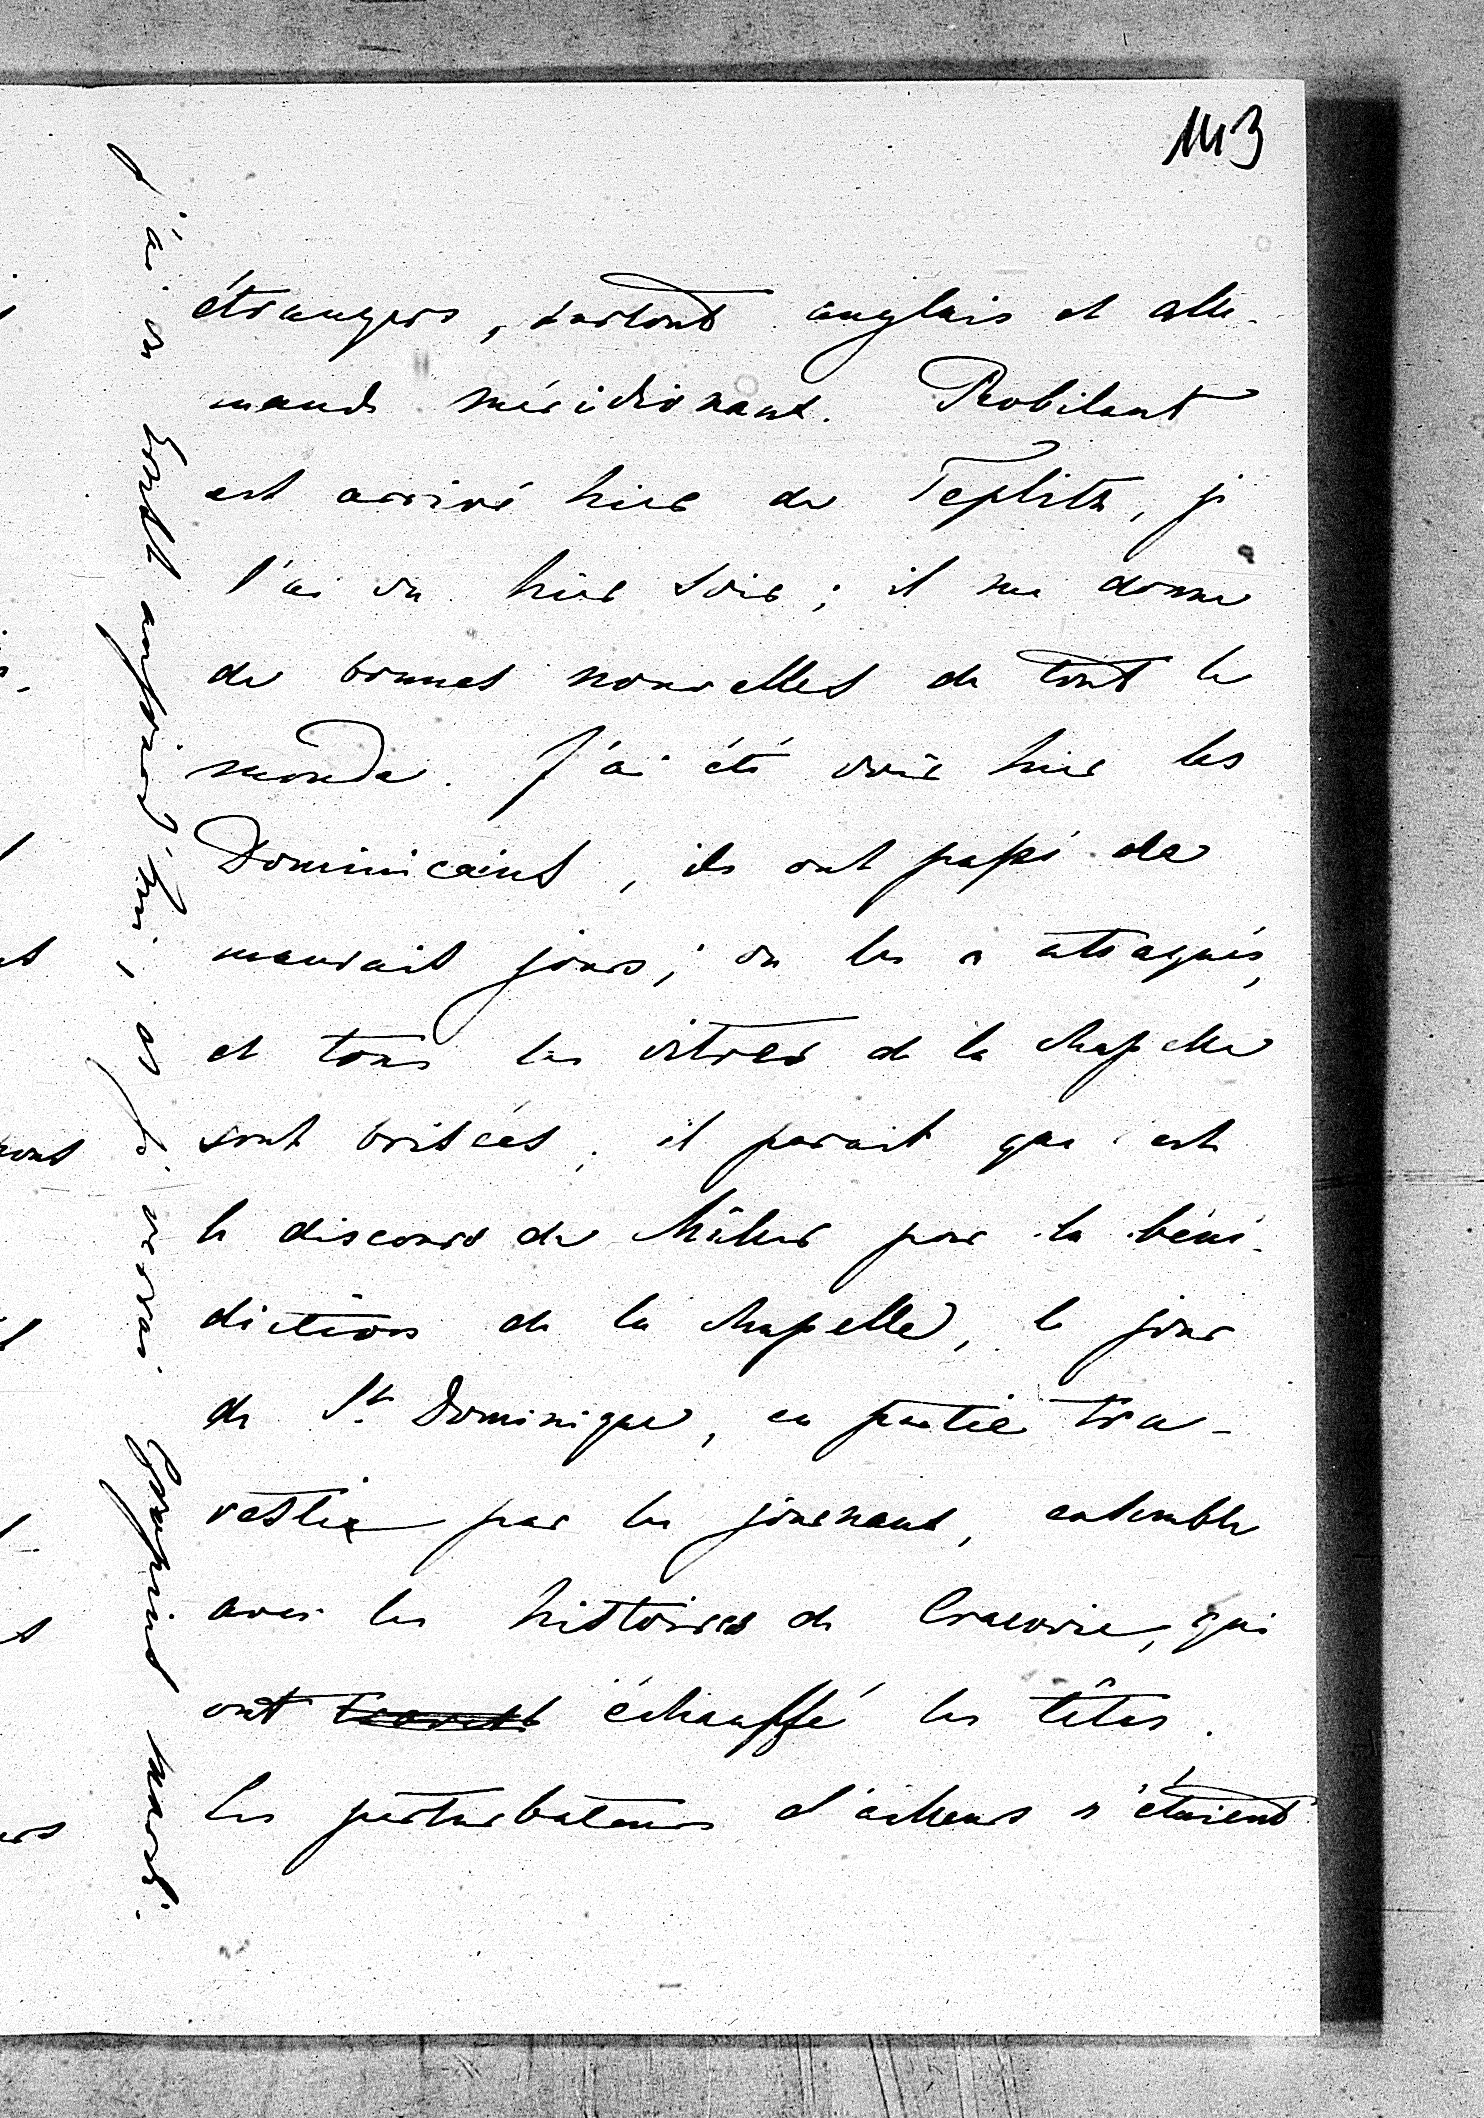 143
étrangers, surtout anglais et alle-
mands méridionaux. Robilant
est arrivé hier de Teplitz, je
l'ai vu hier soir; il me donne
de bonnes nouvelles de tout le
monde. J'ai été voir hier les
Dominicains, ils ont passé de
mauvais jours; on les a attaqués,
et tous les vitres de la chapelle
sont brisées; il parait que c'est
le discours de Müller pour la béné-
diction de la chapelle, le jour
de St. Dominique, en partie tra-
vestie par les journaux, ensemble
avec les histoires de Cracovie, qui
ont échauffé les têtes.
Les perturbateurs d'ailleurs s'étaient
J'ai vu aujourd'hui, et je verrai mardi.